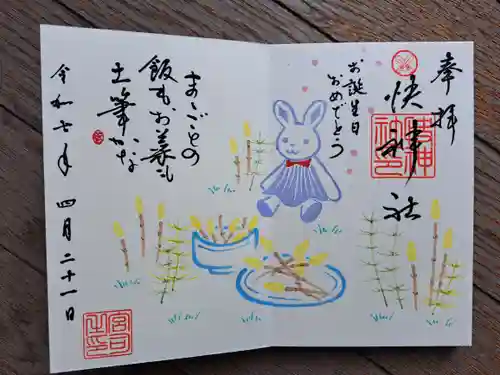 奉拝
快神社
お誕生日
おめでとう
まゝごとの
飯もお菜も
土筆かな
令和七年 四月二十一日